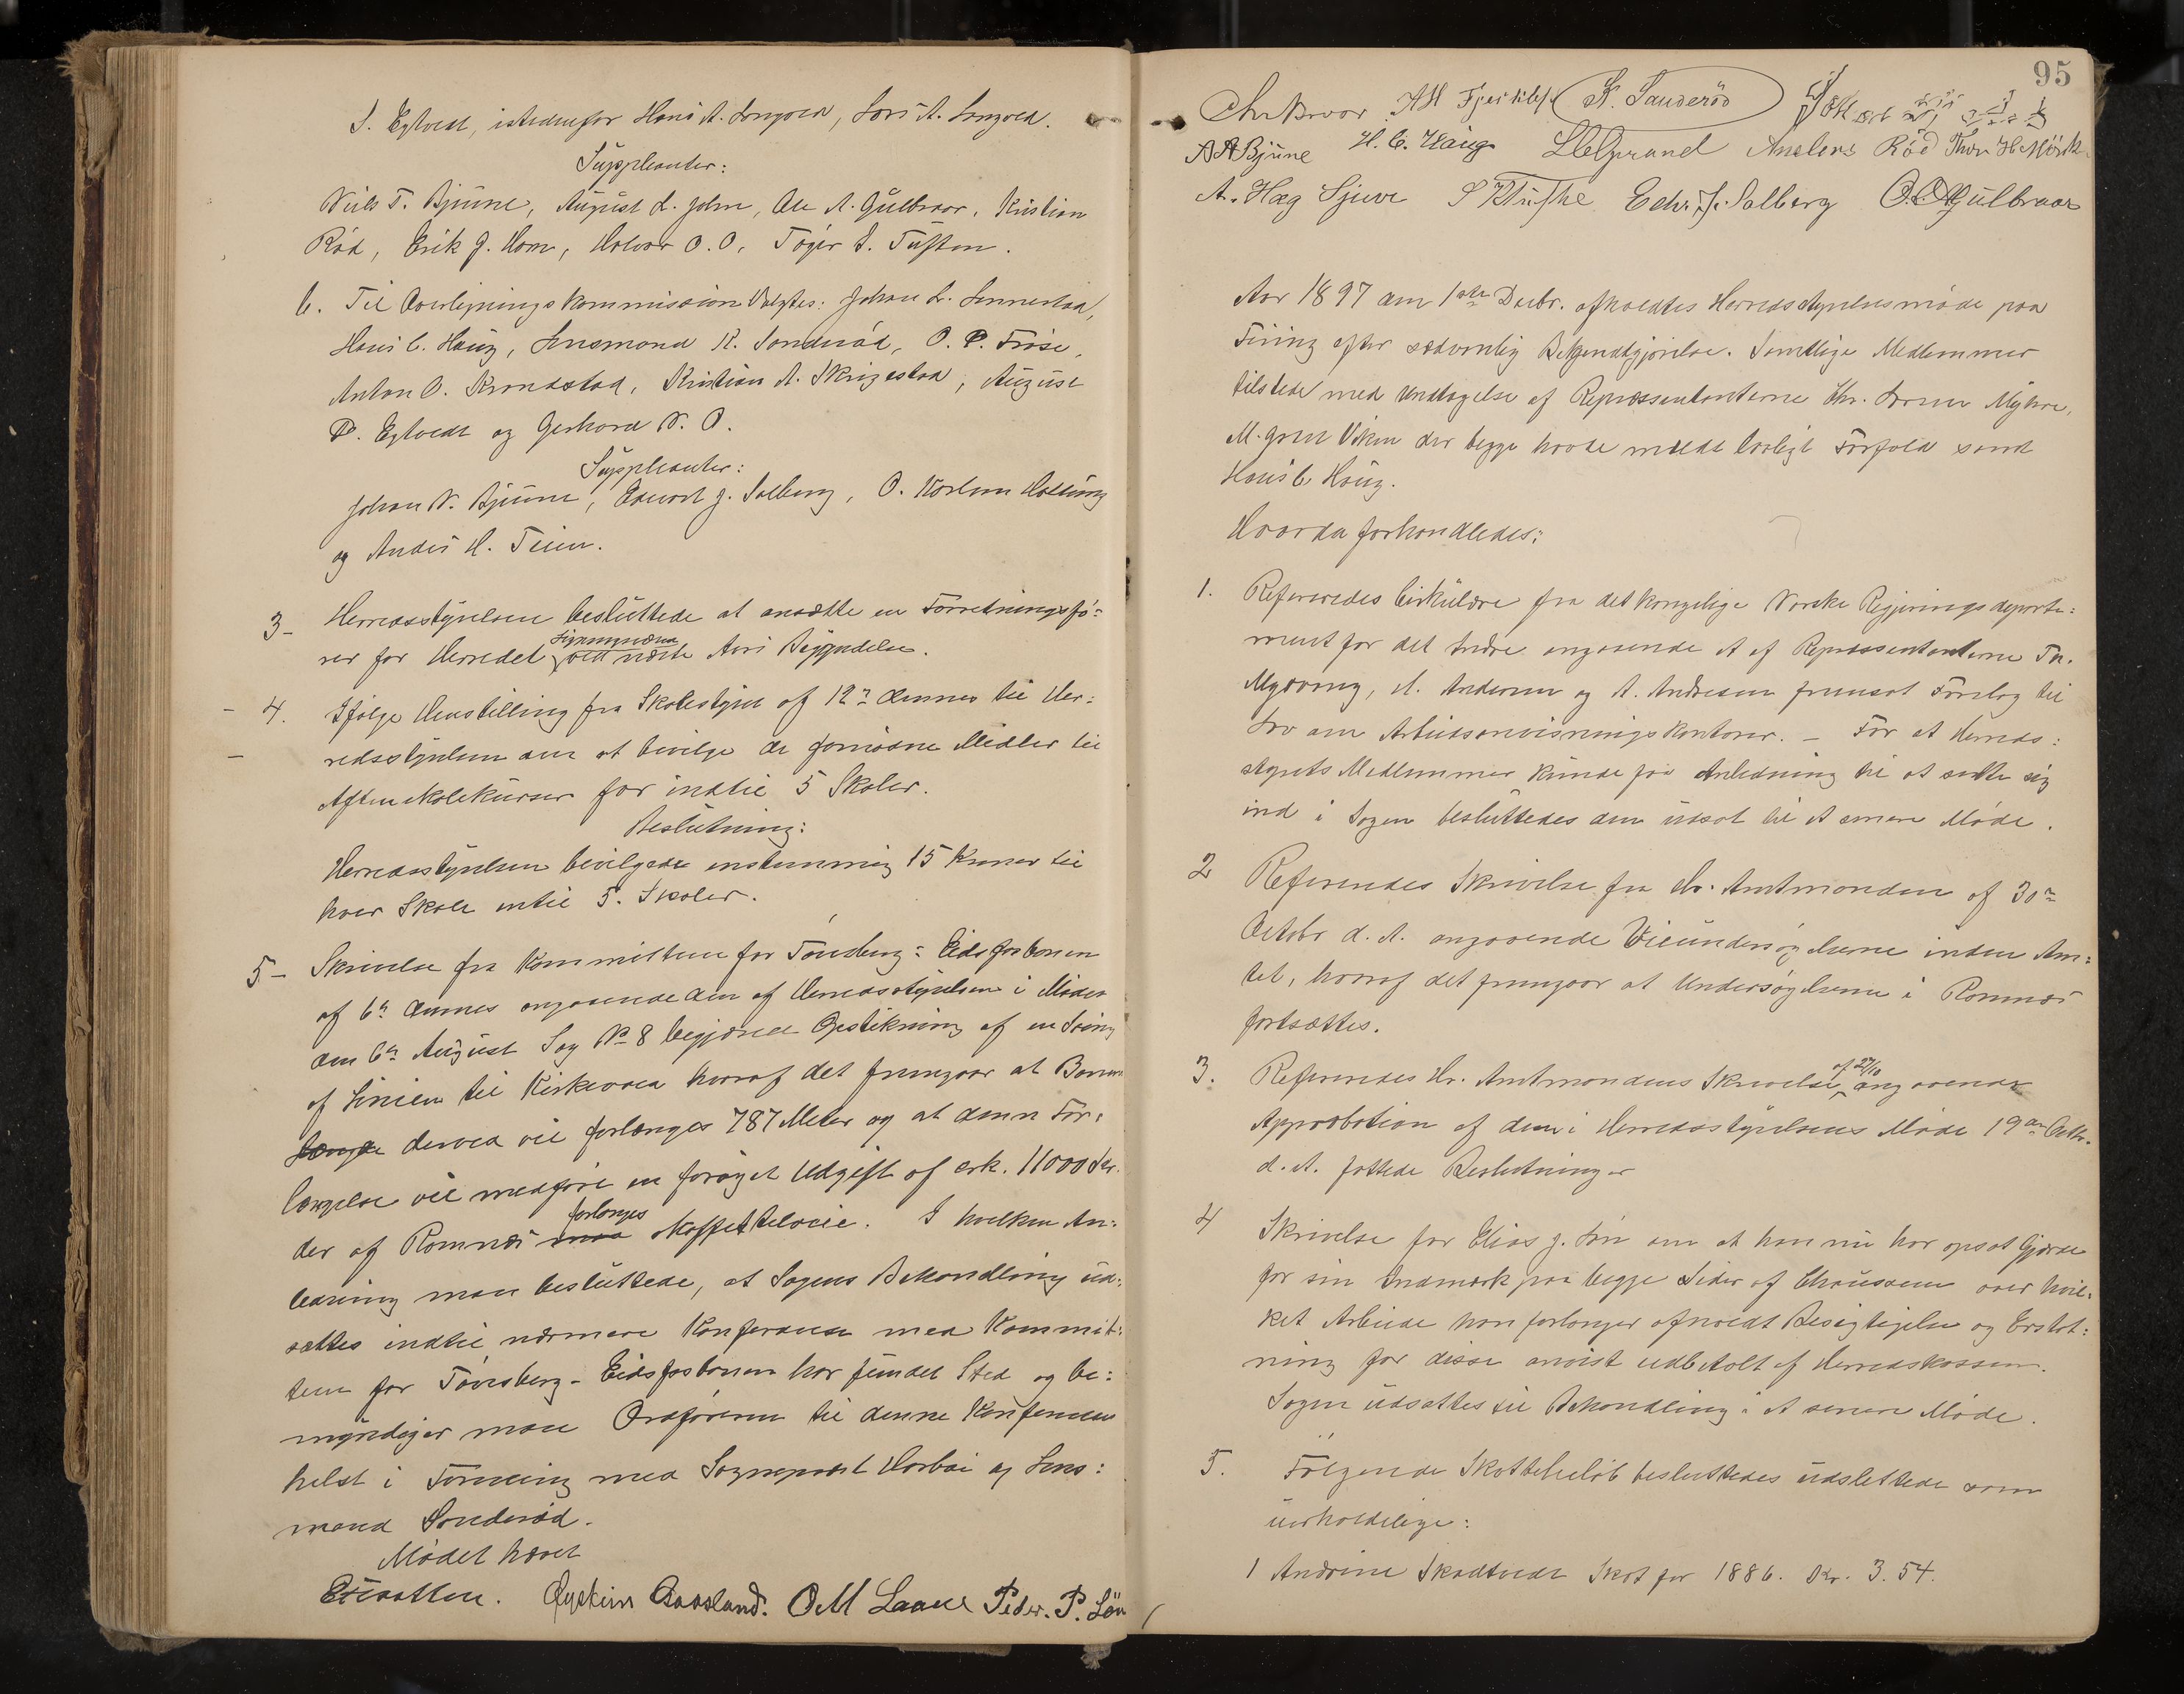 S. Egtvedt, istedenfor Hans A. Langved, Lars A. Langved.
Suppleanter:
Niels T. Bjune, August L. John, Ole A. Gulbraar, Kristian
Rød, Erik J. Hom, Halvor O. O, Tøger S. Tufton.
6. Til Overligningskommission Valgtes: Johan L. Linnestad,
Hans C. Haug, Lensmand K. Sanderød, O. P. Frøse,
Anton O. Krondstad, Kristian A. Skrigestad, August
P. Egtvedt og Gerhard N. O.
Suppleanter:
Johan N. Bjune, Edvart J. Solberg, O. Karlsen Holtung
og Anders H. Teien.
3- Herredsstyrelsen besluttede at ansætte en Forretningsfø-
rer for Herredet ved næste Aars Begyndelse.
4. Ifølge Henstilling fra Skolestyret af 12te dennes til Her-
redsstyrelsen om at bevilge de fornødne Midler til
Aftenskolekurser for indtil 5 Skoler.
Beslutning:
Herredsstyrelsen bevilgede enstemmig 15 Kroner til
hver Skole intil 5. Skoler.
5- Skrivelse fra Kommitteen for Tønsberg-Eidsfosbanen
af 6te dennes angaaende den af Herredsstyrelsen i Mødet
den 6te August Sag No 8 begjærede Opstikning af en Sving
af Linien til Kirkevold hvoraf det fremgaar at Banen
længde derved vil forlænges 787 Meter og at denne For-
længelse vil medføre en forøget Udgift af ca. 11000 Kr.
der af Ramnes maa forlanges skaffet tilveie. I hvilken An-
ledning man besluttede, at Sagens Behandling ud-
sættes indtil nærmere Konferanse med Kommit-
teen for Tønsberg-Eidsfosbanen har fundet Sted og be-
myndiger man Ordføreren til denne Konferense
helst i Forening med Sogneprest Horbøi og Lens-
mand Sanderød.
Mødet hævet
Øystein Aasland. O M Laane Peder. P. Lön
95
K. Sanderød
A A Bjune H. C. Haug Anders Rød Thor H Mörk
A. Hag Sjuve Edv. J. Solberg O. A. Gulbraar
Aar 1897 den 1ste Decbr. afholdtes Herredsstyrelsesmøde paa
Firing efter sædvanlig Bekjendtgjørelse. Samtlige Medlemmer
tilstede med Undtagelse af Repræsentanterne Hr. Myhre,
M. Viken der begge havde meldt lovligt Forfald samt
Hans C. Haug.
Hvorda forhandledes:
1. Refereredes Cirkulære fra det kongelige Norske Regjerings departe-
ment for det Indre angaaende et af Repræsentanterne
A. Andersen og A. Andresen fremsat Forslag til
Lov om Arbeidsanvisningskontorer. - For at Herreds-
styrets Medlemmer kunde faa Anledning til at sætte sig
ind i Sagen besluttedes den udsat til et senere Møde.
2 Refereredes Skrivelse fra Hr. Amtmanden af 30te
Octobr d. A. angaaende Veiundersøgelserne inden Am-
tet, hvoraf det fremgaar at Undersøgelserne i Ramnæs
fortsættes.
3. Refereredes Hr. Amtmandens Skrivelse af 27/10 angaaende
Approbation af den i Herredsstyrelsens Møde 19de Octbr.
d. A. fattede Beslutninger
4 Skrivelse fra Elias J. Løn om at han nu har opsat Gjærde
for sin Indmark paa begge Sider af Chausseen over hvil-
ket Arbeide han forlanger afholdt Besigtigelse og Erstat-
ning for disse anvist udbetalt af Herredskassen.
Sagen udsattes til Behandling i et senere Møde.
5. Følgende Skattebeløb besluttedes udslettede som
uerholdelige:
1 Andrine Skadtvedt Skat for 1886. Kr. 3. 54.